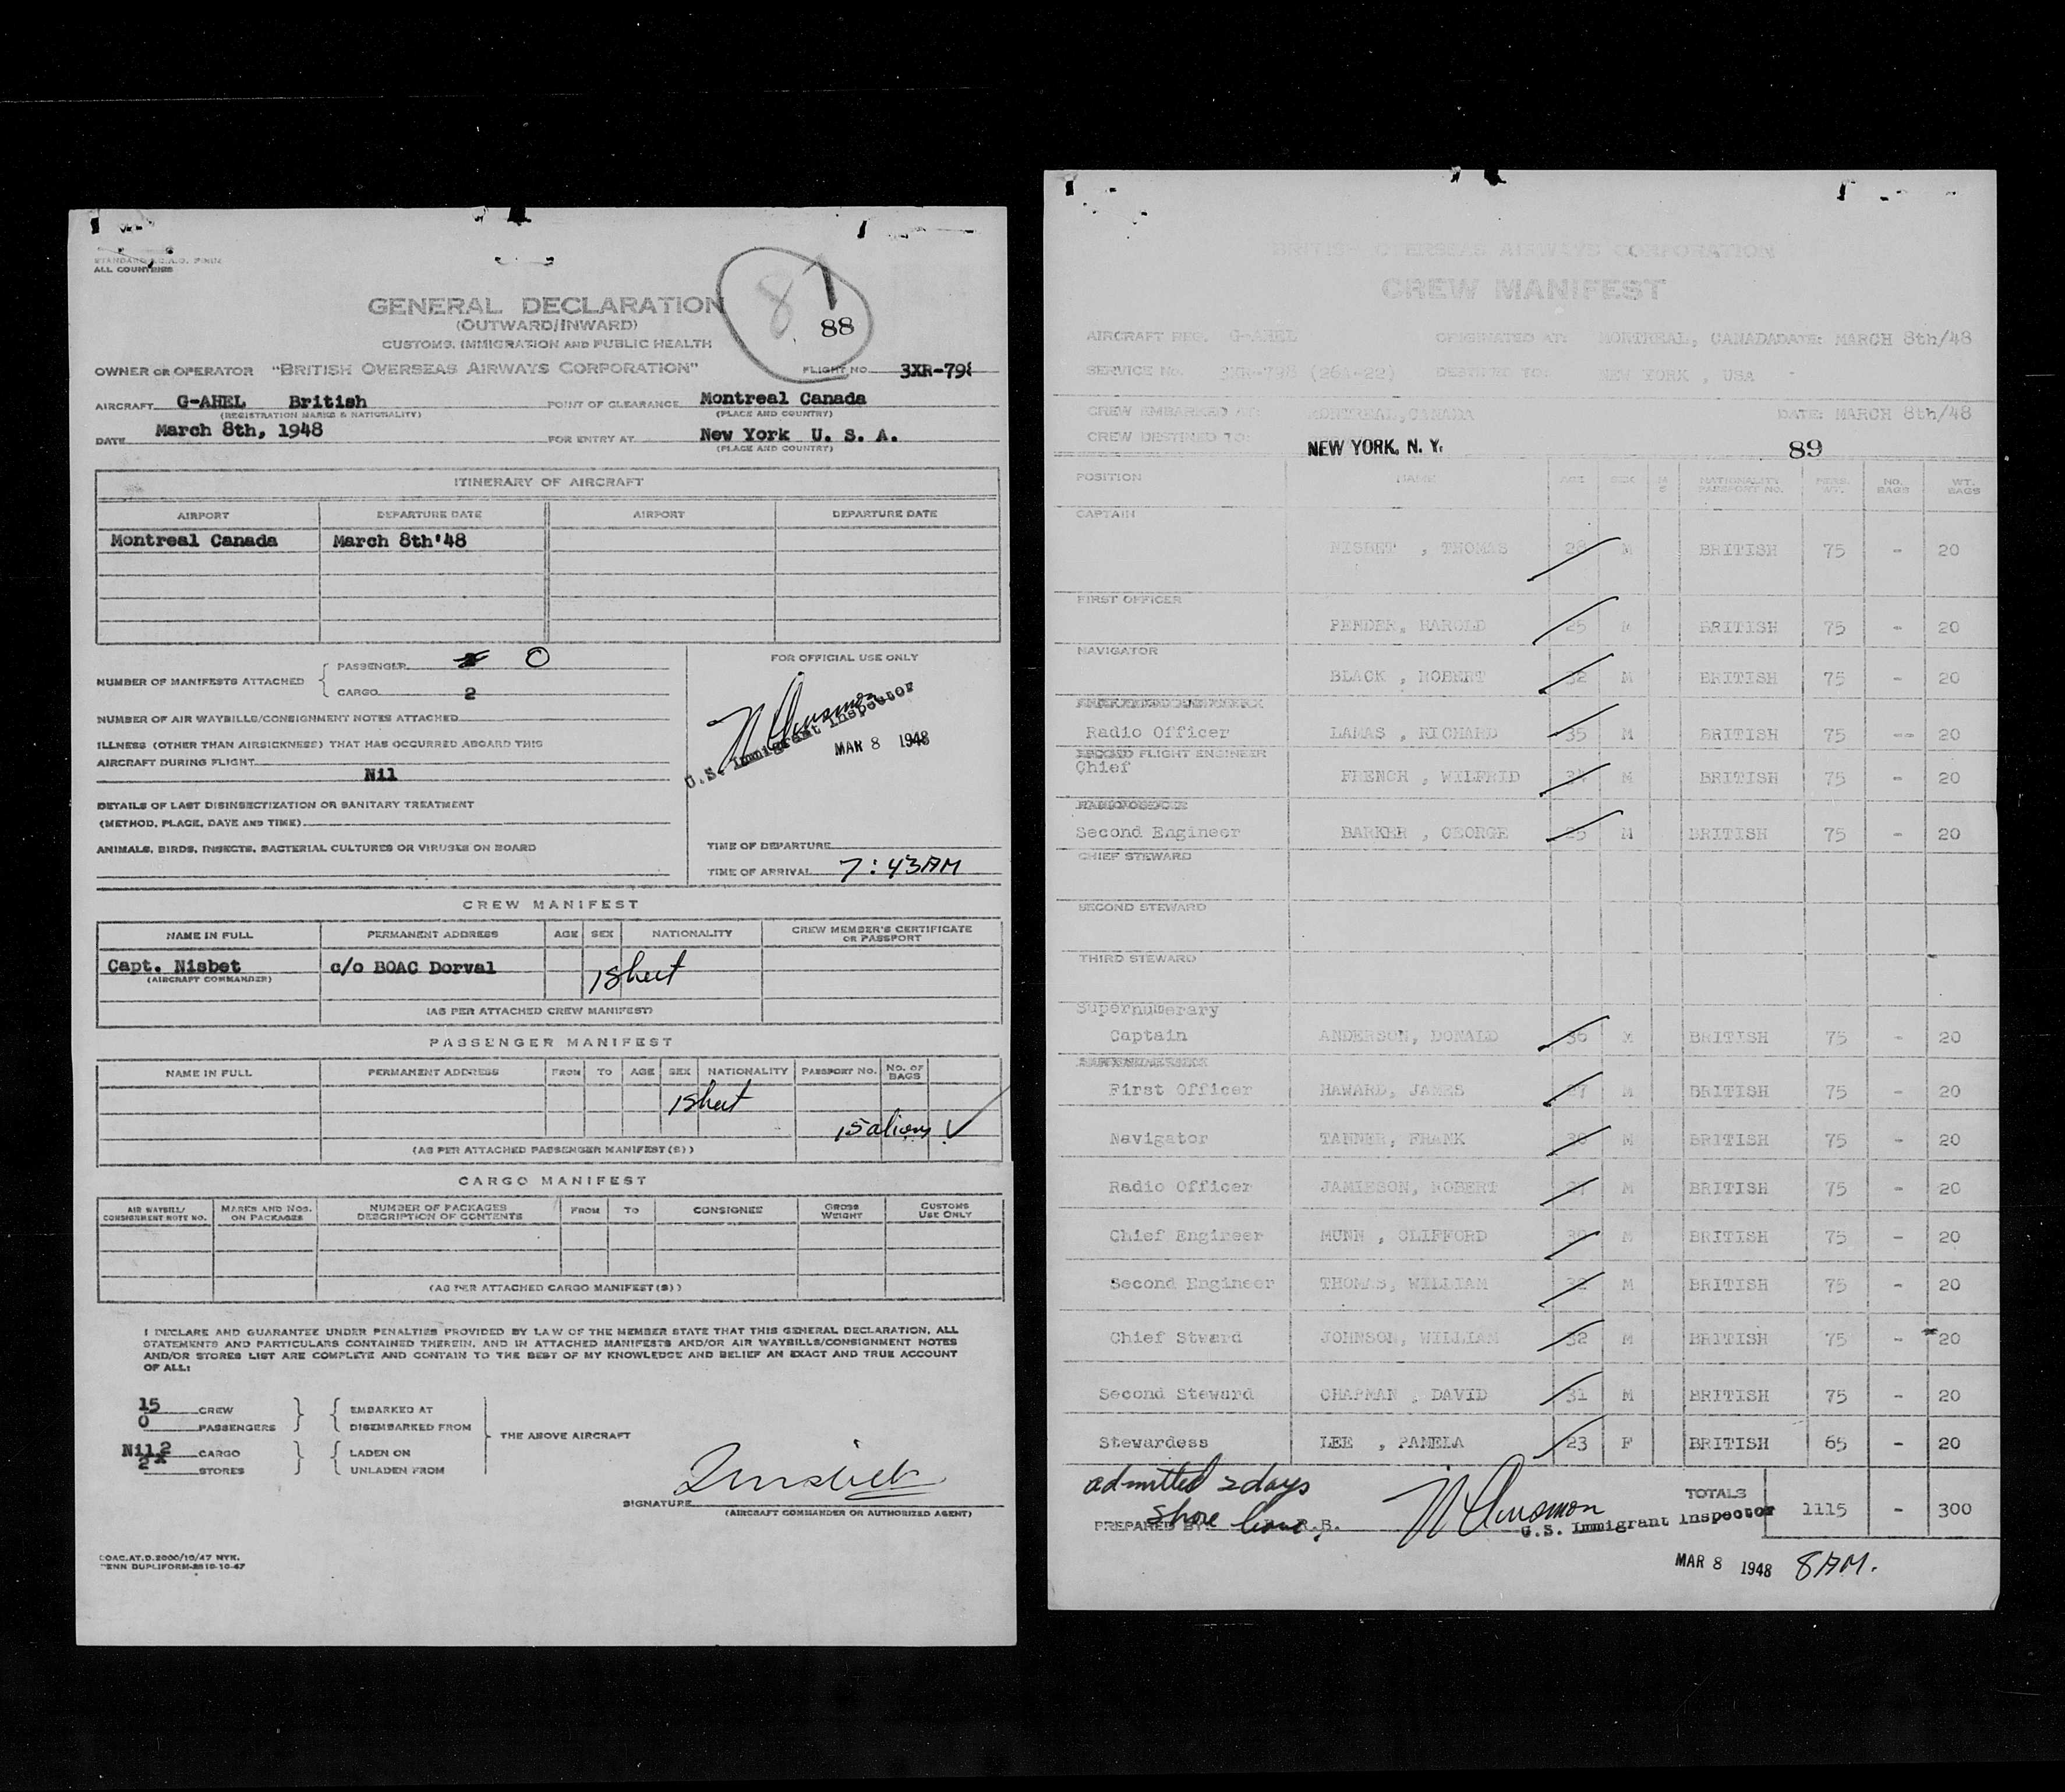 ALL COUNTRIES
GENERAL DECLARATION
(OUTWARD/INWARD)
CUSTOMS, IMMIGRATION AND PUBLIC HEALTH
88
OWNER OR OPERATOR "BRITISH OVERSEAS AIRWAYS CORPORATION" FLIGHT NO. 3XR-798
AIRCRAFT G-AHEL British POINT OF CLEARANCE Montreal Canada
(REGISTRATION MARKS & NATIONALITY) (PLACE AND COUNTRY)
DATE March 8th, 1948 FOR ENTRY AT New York U. S. A.
(PLACE AND COUNTRY)
ITINERARY OF AIRCRAFT
AIRPORT DEPARTURE DATE AIRPORT DEPARTURE DATE
Montreal Canada March 8th'48
NUMBER OF MANIFESTS ATTACHED { PASSENGER 0
CARGO 2
NUMBER OF AIR WAYBILLS/CONSIGNMENT NOTES ATTACHED
ILLNESS (OTHER THAN AIRSICKNESS) THAT HAS OCCURRED ABOARD THIS
AIRCRAFT DURING FLIGHT
Nil
DETAILS OF LAST DISINSECTIZATION OR SANITARY TREATMENT
(METHOD, PLACE, DATE AND TIME)
ANIMALS, BIRDS, INSECTS, BACTERIAL CULTURES OR VIRUSES ON BOARD
FOR OFFICIAL USE ONLY
U.S. Immigrant Inspector
MAR 8 1948
TIME OF DEPARTURE
TIME OF ARRIVAL 7:43AM
CREW MANIFEST
NAME IN FULL PERMANENT ADDRESS AGE SEX NATIONALITY CREW MEMBER'S CERTIFICATE OR PASSPORT
Capt. Nisbet c/o BOAC Dorval 1 Sheet
(AIRCRAFT COMMANDER)
(AS PER ATTACHED CREW MANIFEST)
PASSENGER MANIFEST
NAME IN FULL PERMANENT ADDRESS FROM TO AGE SEX NATIONALITY PASSPORT NO. NO. OF BAGS
1 Sheet
15 aliens
(AS PER ATTACHED PASSENGER MANIFEST(S))
CARGO MANIFEST
AIR WAYBILL/ CONSIGNMENT NOTE NO. MARKS AND NOS. ON PACKAGES NUMBER OF PACKAGES DESCRIPTION OF CONTENTS FROM TO CONSIGNEE GROSS WEIGHT CUSTOMS USE ONLY
(AS PER ATTACHED CARGO MANIFEST(S))
I DECLARE AND GUARANTEE UNDER PENALTIES PROVIDED BY LAW OF THE MEMBER STATE THAT THIS GENERAL DECLARATION, ALL
STATEMENTS AND PARTICULARS CONTAINED THEREIN, AND IN ATTACHED MANIFESTS AND/OR AIR WAYBILLS/CONSIGNMENT NOTES
AND/OR STORES LIST ARE COMPLETE AND CONTAIN TO THE BEST OF MY KNOWLEDGE AND BELIEF AN EXACT AND TRUE ACCOUNT
OF ALL:
15 CREW } { EMBARKED AT
0 PASSENGERS DISEMBARKED FROM
THE ABOVE AIRCRAFT
Nil 2 CARGO } { LADEN ON
2 STORES UNLADEN FROM
SIGNATURE
(AIRCRAFT COMMANDER OR AUTHORIZED AGENT)
BOAC.AT.D.2000/10/47 NYK.
PENN DUPLIFORM-2810-10-47
BRITISH OVERSEAS AIRWAYS CORPORATION
CREW MANIFEST
AIRCRAFT REG. G-AHEL ORIGINATED AT: MONTREAL, CANADA DATE: MARCH 8th/48
SERVICE NO. 3XR-798 (26A-22) DESTINED TO: NEW YORK, USA
CREW EMBARKED AT: MONTREAL, CANADA DATE: MARCH 8th/48
CREW DESTINED TO: NEW YORK, N. Y. 89
POSITION NAME AGE SEX M S NATIONALITY PASSPORT NO. PERS. WT. NO. BAGS WT. BAGS
CAPTAIN
NISBET , THOMAS 28 M BRITISH 75 - 20
FIRST OFFICER
PENDER, HAROLD 25 M BRITISH 75 - 20
NAVIGATOR
BLACK , ROBERT 32 M BRITISH 75 - 20
Radio Officer LAMAS , RICHARD 35 M BRITISH 75 -- 20
SECOND FLIGHT ENGINEER
Chief FRENCH , WILFRID M BRITISH 75 - 20
Second Engineer BARKER , GEORGE 25 M BRITISH 75 - 20
CHIEF STEWARD
SECOND STEWARD
THIRD STEWARD
Supernumerary
Captain ANDERSON, DONALD 36 M BRITISH 75 - 20
First Officer HAWARD, JAMES 27 M BRITISH 75 - 20
Navigator TANNER, FRANK 30 M BRITISH 75 - 20
Radio Officer JAMIESON, ROBERT M BRITISH 75 - 20
Chief Engineer MUNN , CLIFFORD M BRITISH 75 - 20
Second Engineer THOMAS, WILLIAM 32 M BRITISH 75 - 20
Chief Stward JOHNSON, WILLIAM 32 M BRITISH 75 - 20
Second Steward CHAPMAN , DAVID 31 M BRITISH 75 - 20
Stewardess LEE , PAMELA 23 F BRITISH 65 - 20
TOTALS 1115 - 300
admitted 2 days
shore leave
PREPARED BY: R.B.
U.S. Immigrant Inspector
MAR 8 1948 8AM.